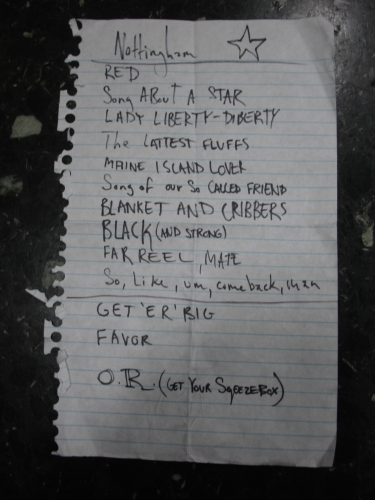 Nottingham
RED
Song ABOUT A STAR
LADY LIBERTY-DIBERTY
The LATTEST FLUFFS
MAINE ISLAND LOVER
Song of our So CALLED FRIEND
BLANKET AND CRIBBERS
BLACK (AND STRONG)
FAR REEL, MATE
So, Like, um, come back, than
GET 'ER' BIG
FAVOR
O.R. (GET YOUR SQEEZEBOX)